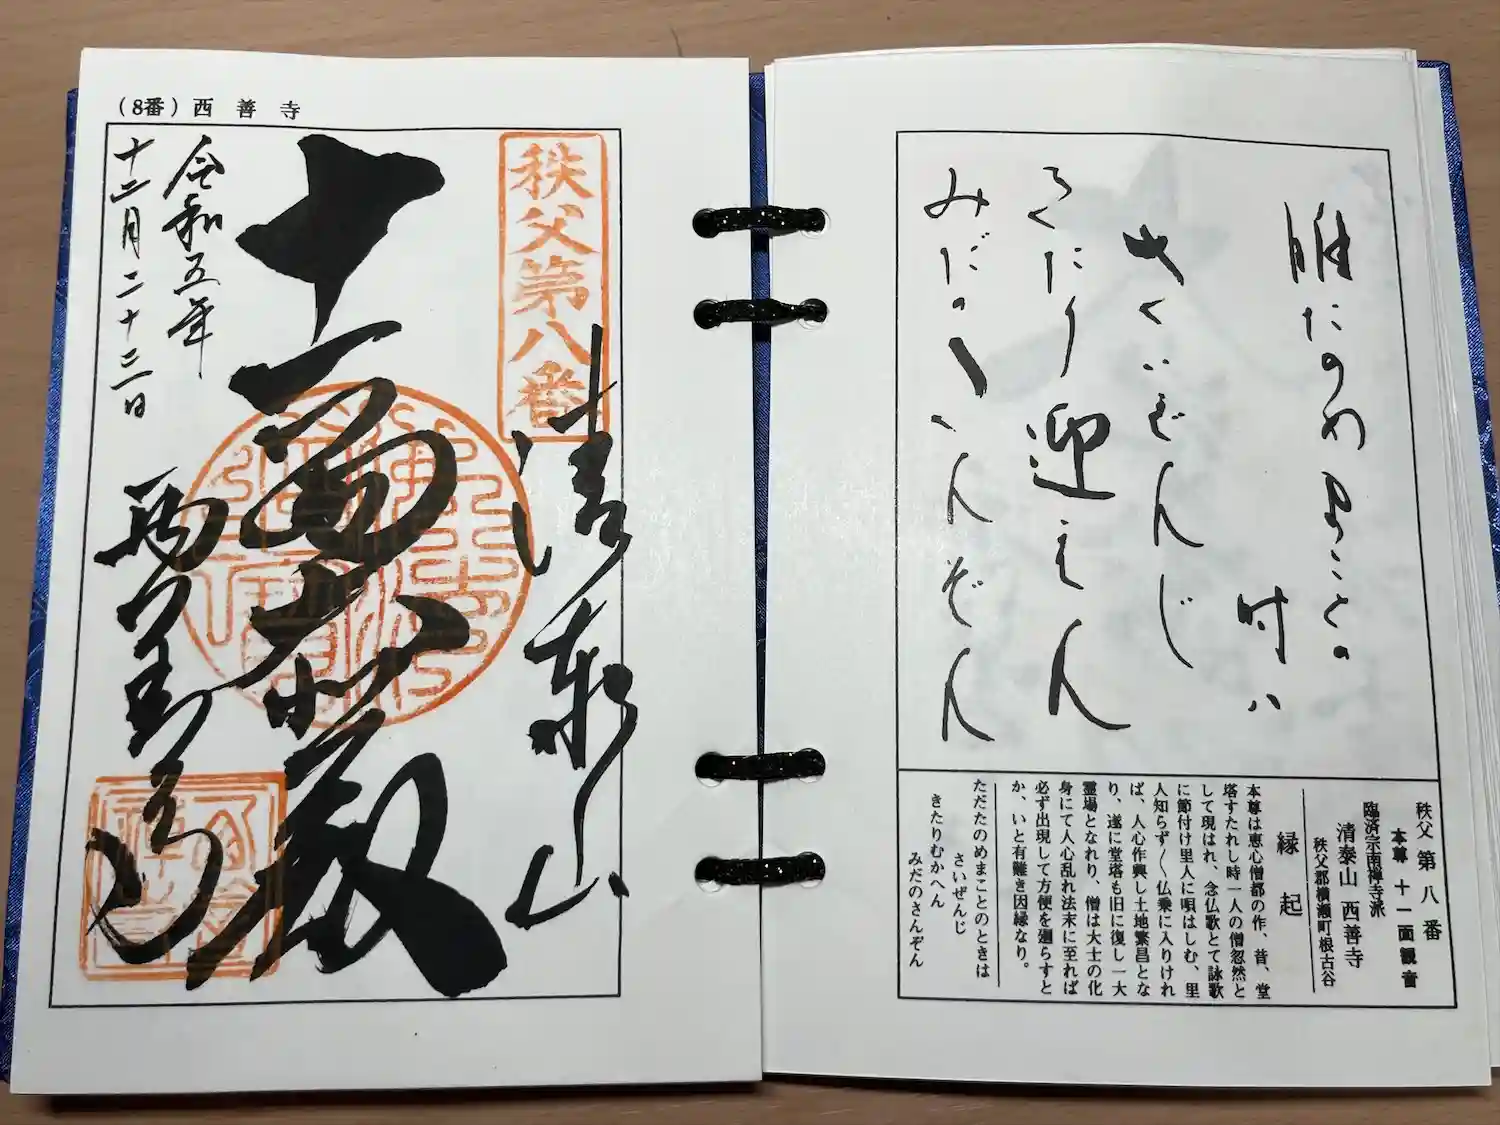 唯たのめまことの
時ハ
さいぜんじ
きたり迎えん
みだのさんぞん
秩父第八番
本尊 十一面観音
臨済宗南禅寺派
清泰山 西善寺
秩父郡横瀬町根古谷
縁起
本尊は恵心僧都の作、昔、堂
塔すたれし時一人の僧忽然と
して現はれ、念仏歌とて詠歌
に節付け里人に唄はしむ、里
人知らず〳〵仏乗に入りけれ
ば、人心作興し土地繁昌とな
り、遂に堂塔も旧に復し一大
霊場となれり、僧は大士の化
身にて人心乱れ法末に至れば
必ず出現して方便を廻らすと
か、いと有難き因縁なり。
ただたのめまことのときは
さいぜんじ
きたりむかへん
みだのさんぞん
(8番) 西善寺
秩父第八番
清泰山
十一面
令和五年
十二月二十三日
西善寺